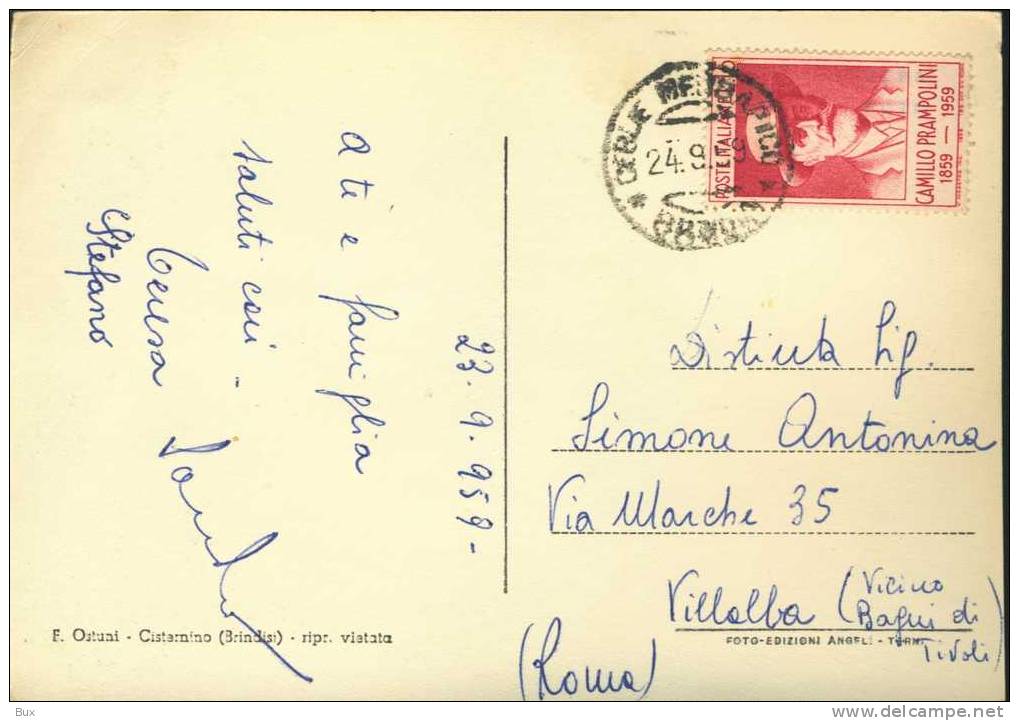 a te è famiglia
saluti cari -
Teresa
Stefano
23.9.959-
F. Ostuni - Cisternino (Brindisi) - ripr. vietata
POSTE ITALIANE
CAMILLO PRAMPOLINI
1859 — 1959
24.9.59
Distinta Sig.
Simone Antonina
Via Marche 35
Villalba (Vicino
Bagni di
Tivoli)
(Roma)
FOTO-EDIZIONI ANGELI - TERNI
Bux